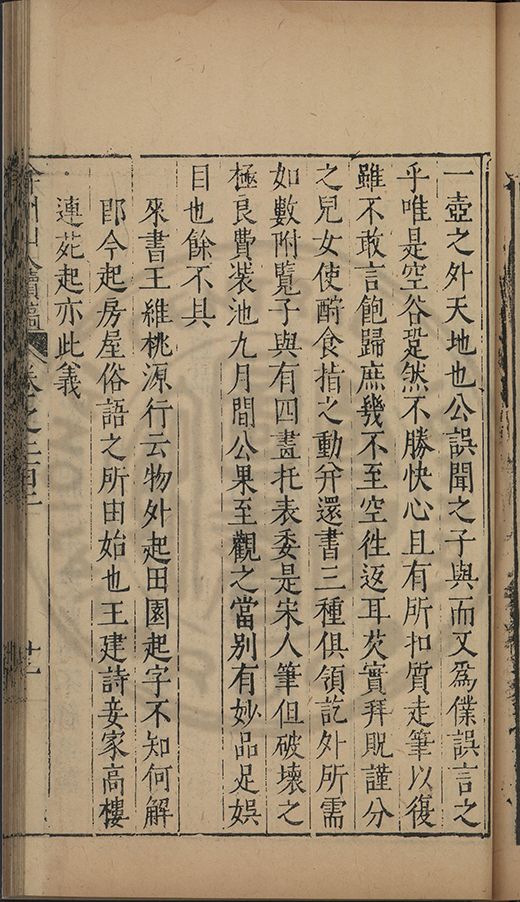 一壺之外天地也公誤聞之子與而又爲僕誤言之
乎唯是空谷跫然不勝快心且有所扣質走筆以復
雖不敢言飽歸庶幾不至空徃返耳芡實拜貺謹分
之兒女使酧食指之動并還書三種俱領訖外所需
如數附覽子與有四畫托表委是宋人筆但破壞之
極良費裝池九月間公果至觀之當别有妙品足娛
目也餘不具
來書王維桃源行云物外起田園起字不知何解
即今起房屋俗語之所由始也王建詩妾家高樓
連苑起亦此義
弇州山人續稿
卷之二百